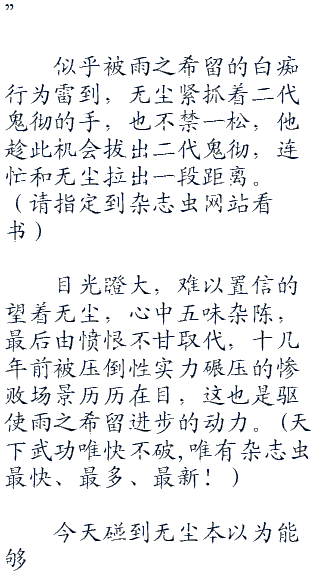 ”
似乎被雨之希留的白痴
行为雷到，无尘紧抓着二代
鬼彻的手，也不禁一松，他
趁此机会拔出二代鬼彻，连
忙和无尘拉出一段距离。
（请指定到杂志虫网站看
书）
目光瞪大，难以置信的
望着无尘，心中五味杂陈，
最后由愤恨不甘取代，十几
年前被压倒性实力碾压的惨
败场景历历在目，这也是驱
使雨之希留进步的动力。(天
下武功唯快不破,唯有杂志虫
最快、最多、最新！)
今天碰到无尘本以为能
够